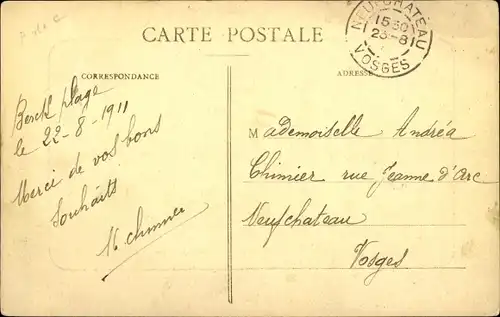 CARTE POSTALE
NEUFCHATEAU
15 30
23-8
VOSGES
CORRESPONDANCE
ADRESSE
Berck plage
le 22-8-1911
Merci de vos bons
Souhaits
Mademoiselle Andréa
Chimier rue Jeanne d'Arc
Neufchateau
Vosges